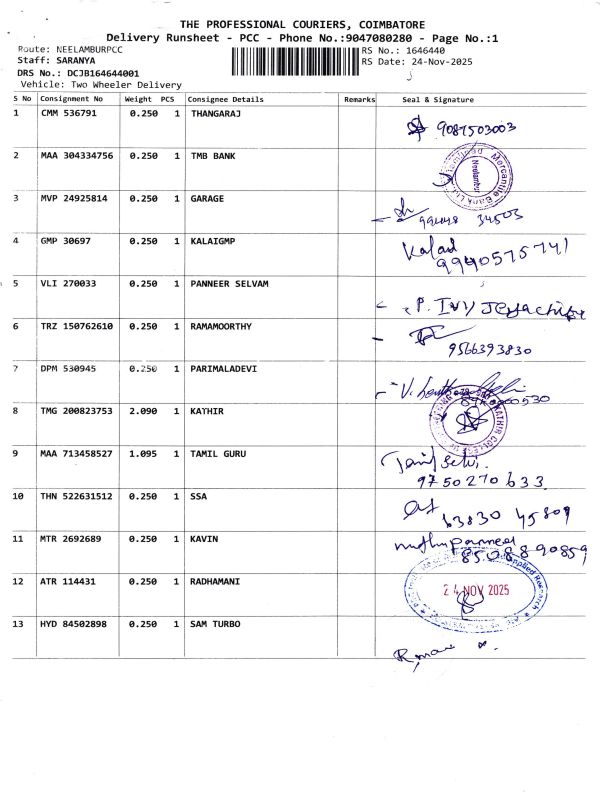 THE PROFESSIONAL COURIERS, COIMBATORE
Delivery Runsheet - PCC - Phone No.:9047080280 - Page No.:1
Route: NEELAMBURPCC
RS No.: 1646440
Staff: SARANYA
RS Date: 24-Nov-2025
DRS No.: DCJB164644001
Vehicle: Two Wheeler Delivery
S No Consignment No Weight PCS Consignee Details Remarks Seal & Signature
1 CMM 536791 0.250 1 THANGARAJ
9087503003
2 MAA 304334756 0.250 1 TMB BANK
Mercantile Bank Ltd
Neelambur
3 MVP 24925814 0.250 1 GARAGE
34503
4 GMP 30697 0.250 1 KALAIGMP
9940575741
5 VLI 270033 0.250 1 PANNEER SELVAM
P.
6 TRZ 150762610 0.250 1 RAMAMOORTHY
9566393830
7 DPM 530945 0.250 1 PARIMALADEVI
V.
8 TMG 200823753 2.090 1 KATHIR
KATHIR COLLEGE OF
9 MAA 713458527 1.095 1 TAMIL GURU
Tamil Selvi.
9750270633
10 THN 522631512 0.250 1 SSA
63830 45809
11 MTR 2692689 0.250 1 KAVIN
8508890859
12 ATR 114431 0.250 1 RADHAMANI
Applied Research
24 NOV 2025
13 HYD 84502898 0.250 1 SAM TURBO